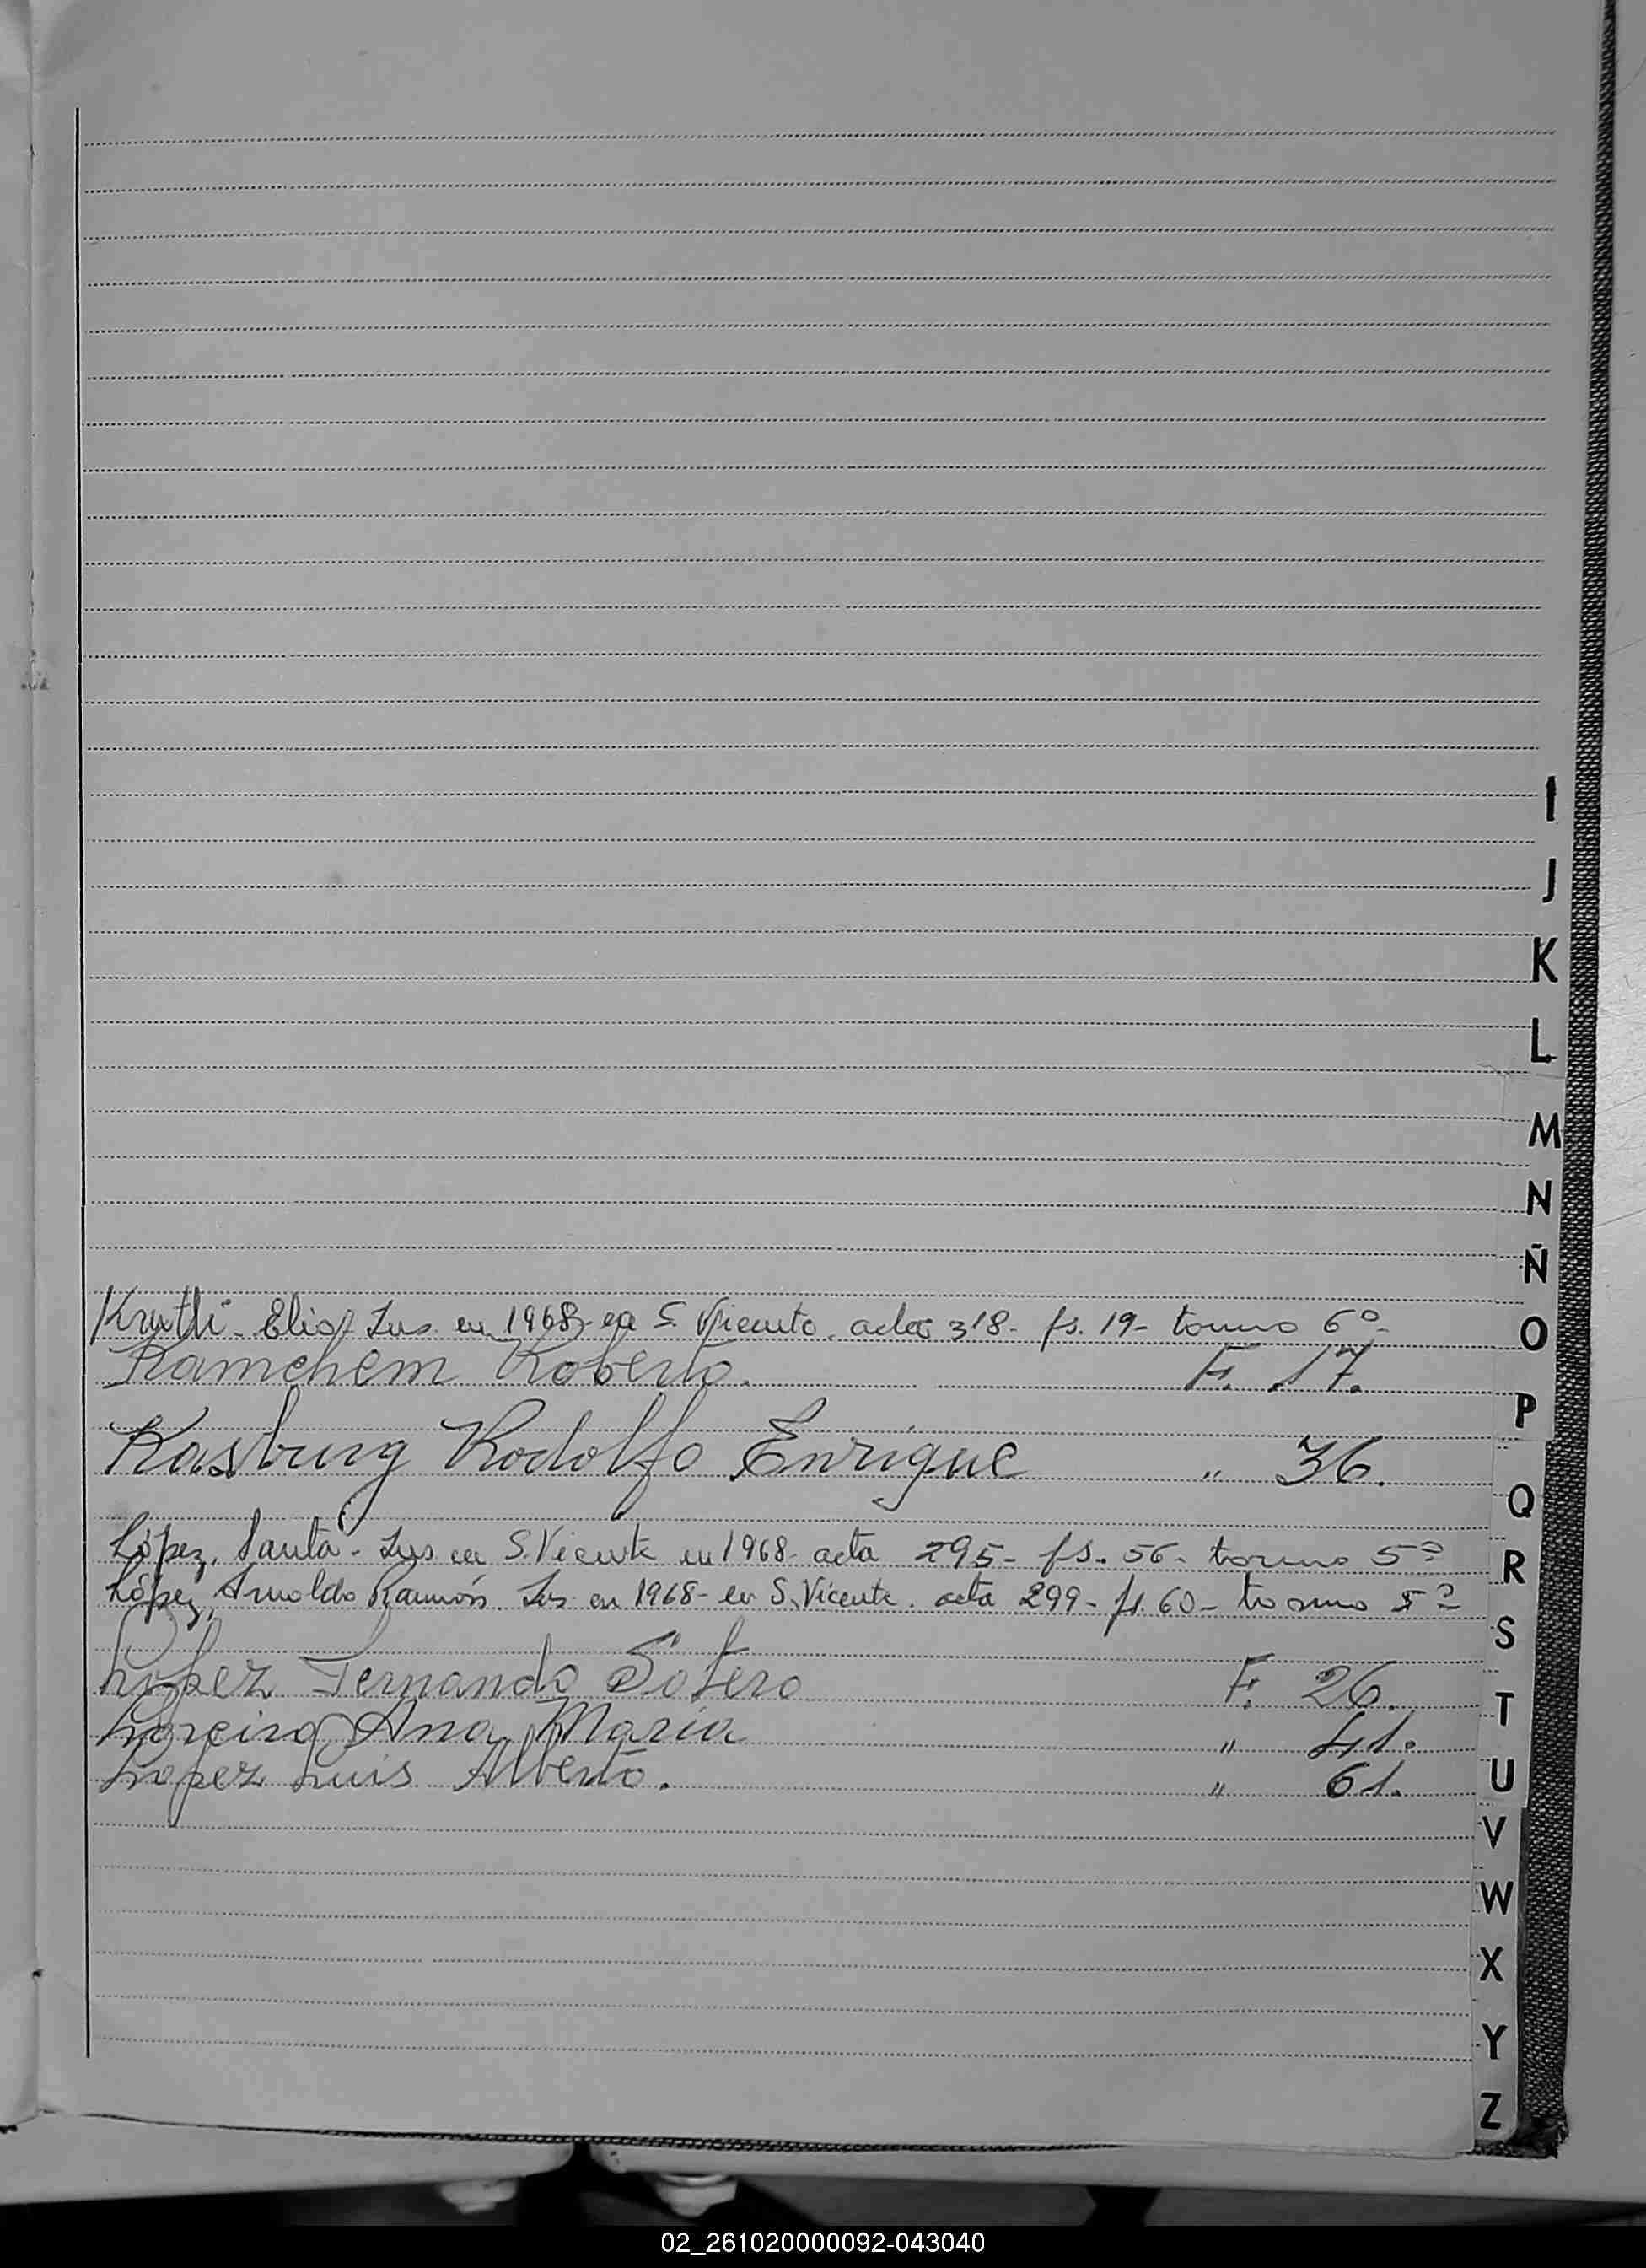 I
J
K
L
M
N
Ñ
O
P
Q
R
S
T
U
V
W
X
Y
Z
Kruthi - Elio Ins en 1968 - en S. Vicente. acta 318 - fs. 19 - tomo 6º
Kamchem Roberto. F. 17.
Kasburg Rodolfo Enrique " 36.
López, Santa - Ins en S. Vicente en 1968 - acta 295 - fs. 56 - tomo 5º
López, Arnoldo Ramón Ins en 1968 - en S. Vicente. acta 299 - fs. 60 - tomo 5º
Lopez Fernando Sotero F. 26.
Ana Maria " 41.
Lopez Luis Alberto. " 61.
02_261020000092-043040